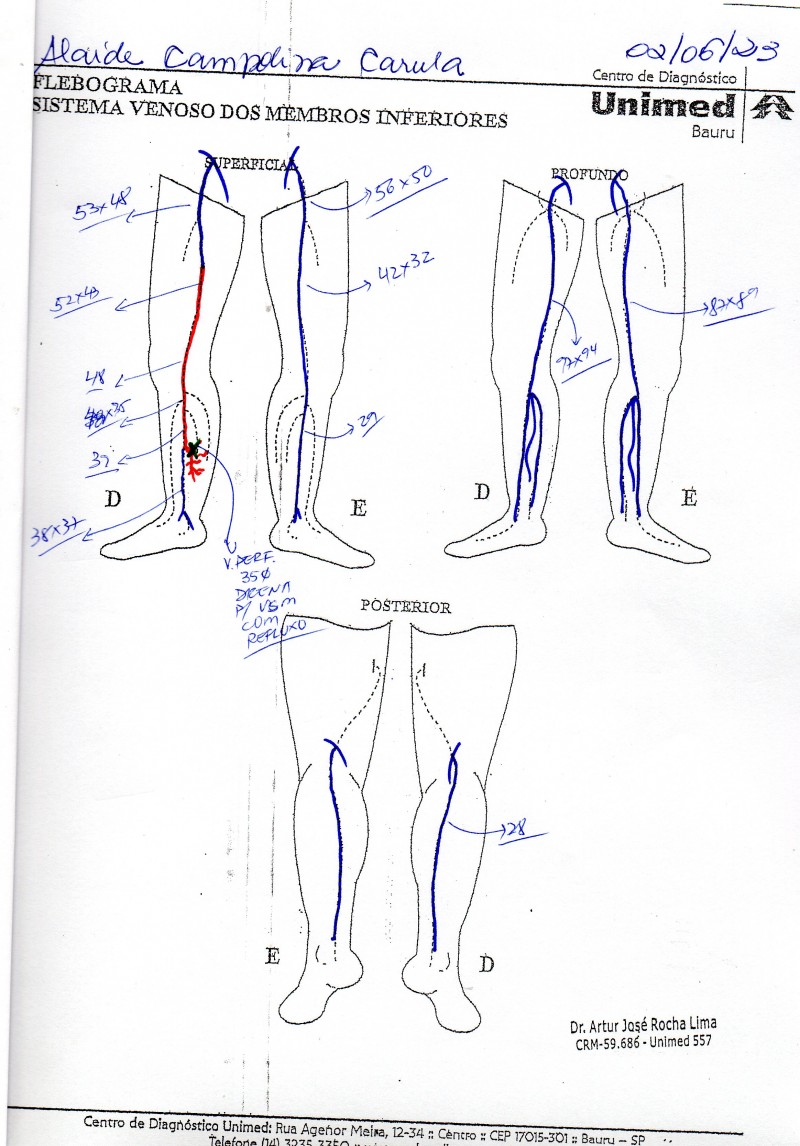 Alaide Campolina Carula
02/06/23
Centro de Diagnóstico
FLEBOGRAMA
SISTEMA VENOSO DOS MEMBROS INFERIORES
Unimed
Bauru
SUPERFICIAL
PROFUNDO
53x48
56x50
52x43
42x32
87x89
97x94
48
39
29
38x37
D
E
D
E
V. PERF.
35Ø
DRENA
P/ VSM
COM
REFLUXO
POSTERIOR
28
E
D
Dr. Artur José Rocha Lima
CRM-59.686 - Unimed 557
Centro de Diagnóstico Unimed: Rua Agenor Meira, 12-34 :: Centro :: CEP 17015-301 :: Bauru – SP
Telefone (14) 3235-3350